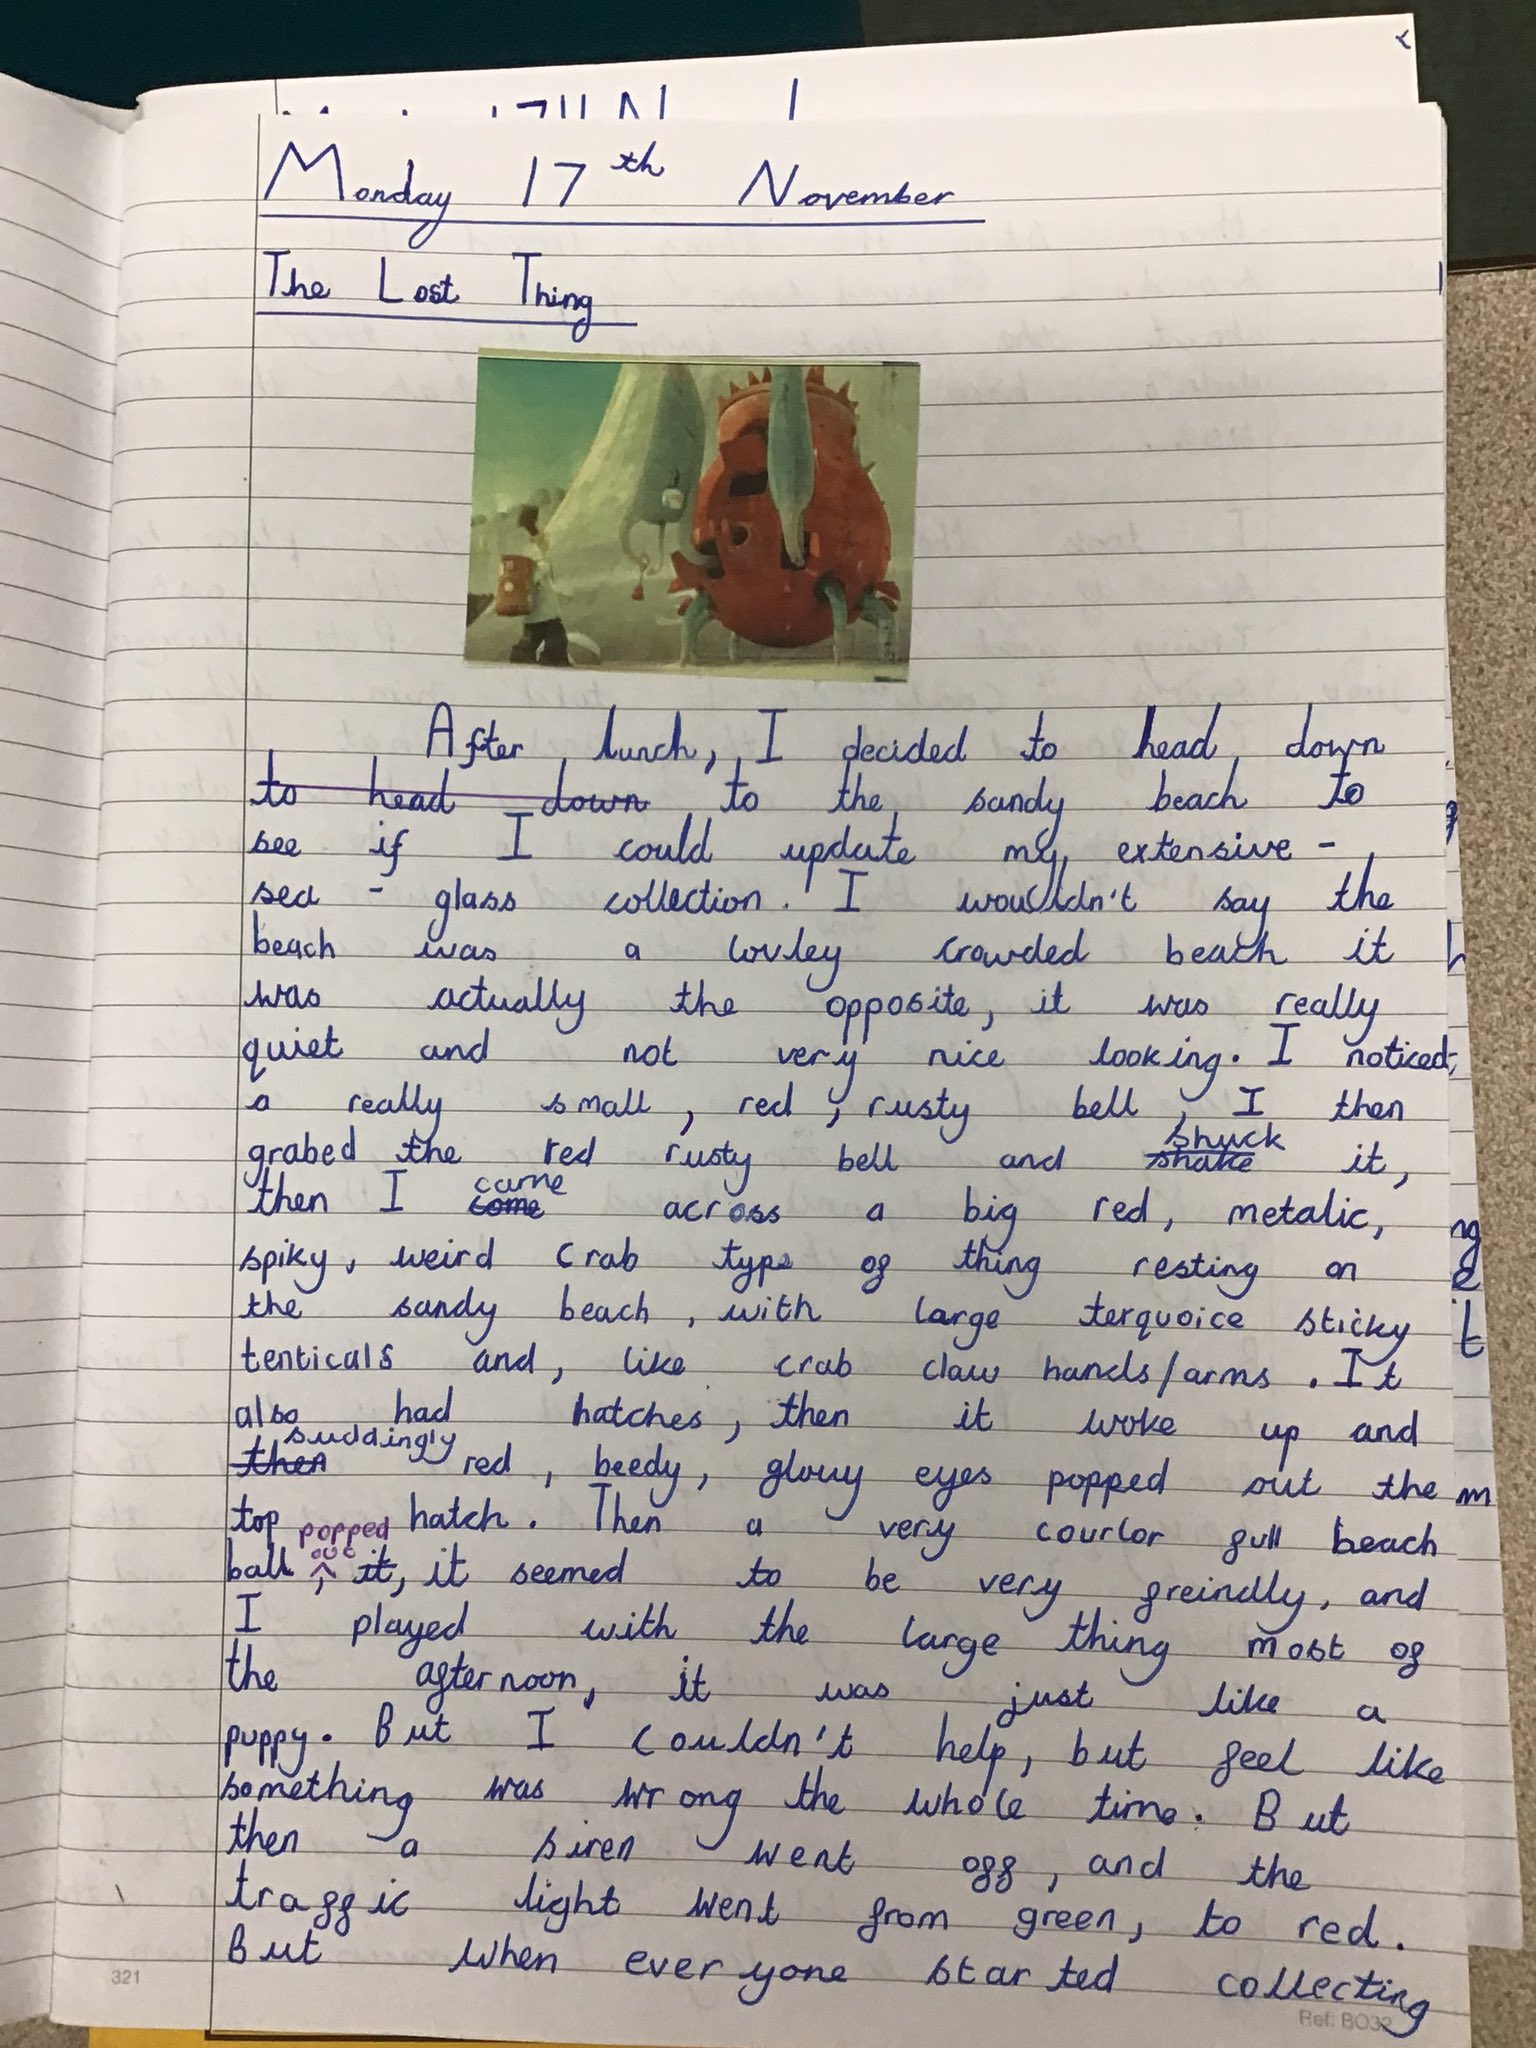 Monday 17th November
The Lost Thing
After lunch, I decided to head down
to head down to the sandy beach to
see if I could update my extensive -
sea - glass collection. I wouldn't say the
beach was a lovley crowded beach it
was actually the opposite, it was really
quiet and not very nice looking. I noticed,
a really small, red, rusty bell, I then
shuck
grabed the red rusty bell and shake it,
came
then I come across a big red, metalic,
spiky, weird crab type of thing resting on
the sandy beach, with large terquoice sticky
tenticals and, like crab claw hands/arms. It
also had hatches, then it woke up and
suddingly
then red, beedy, glowy eyes popped out the
top hatch. Then a very courlor full beach
popped
out
ball, it, it seemed to be very freindly, and
I played with the large thing most of
the afternoon, it was just like a
puppy. But I couldn't help, but feel like
something was wrong the whole time. But
then a siren went off, and the
traffic light went from green, to red.
But when everyone started collecting
321
Ref: BO32